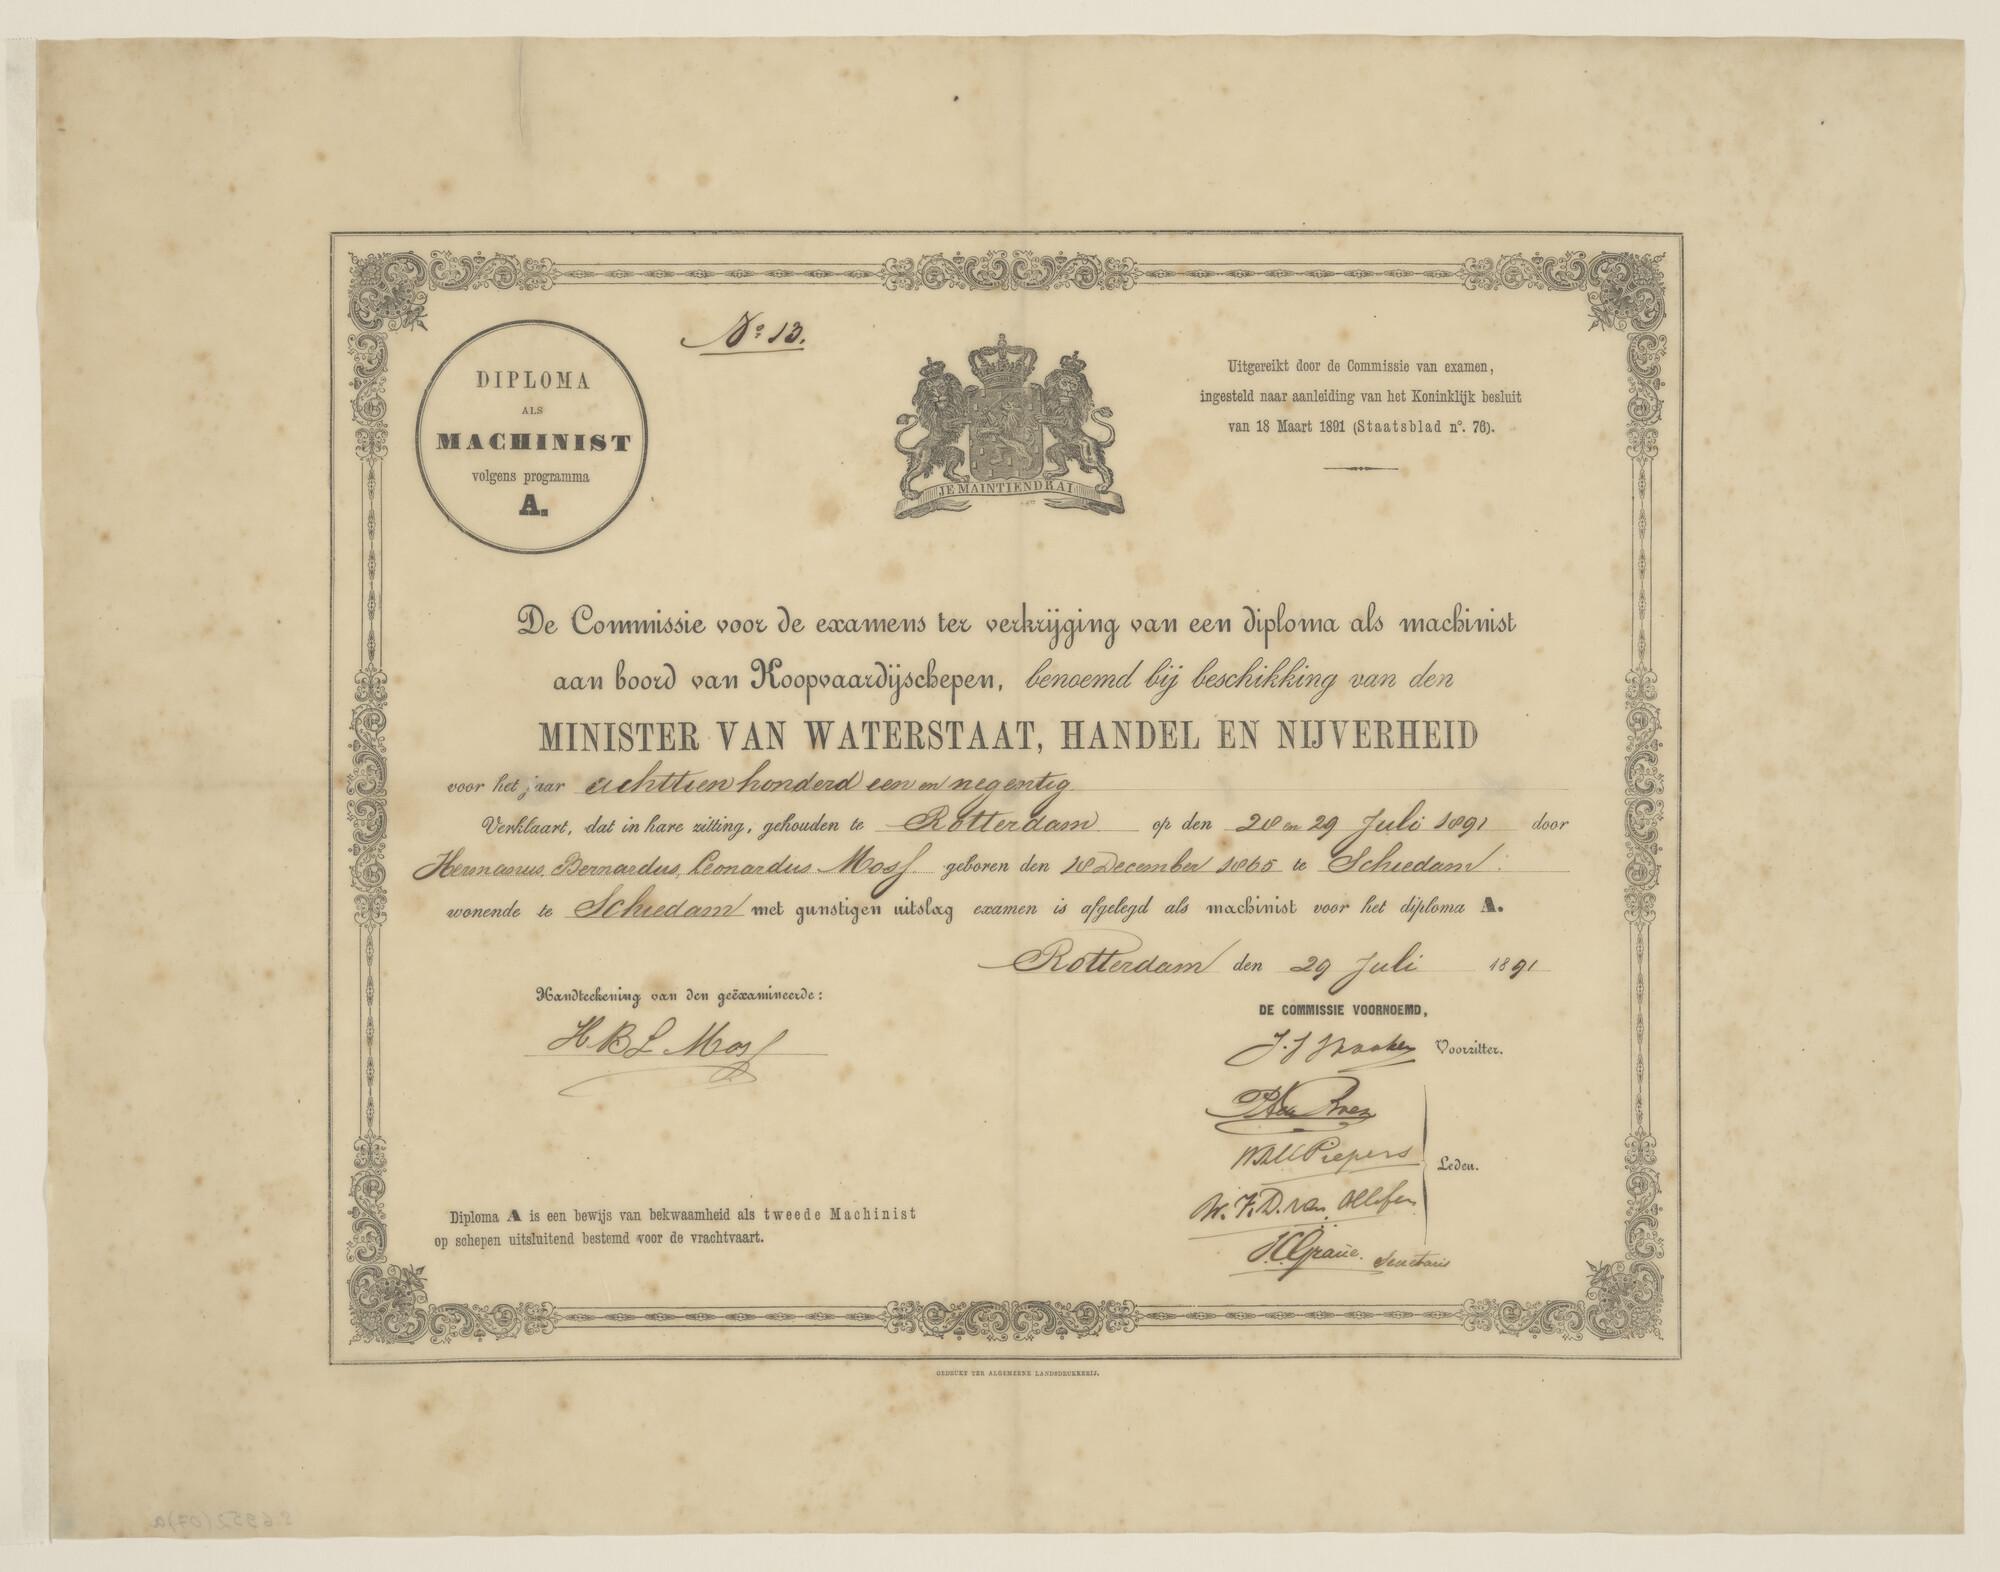 DIPLOMA
ALS
MACHINIST
volgens programma
A.
No. 13.
JE MAINTIENDRAI
Uitgereikt door de Commissie van examen,
ingesteld naar aanleiding van het Koninklijk besluit
van 18 Maart 1891 (Staatsblad no. 76).
De Commissie voor de examens ter verkrijging van een diploma als machinist
aan boord van Koopvaardijschepen, benoemd bij beschikking van den
MINISTER VAN WATERSTAAT, HANDEL EN NIJVERHEID
voor het jaar achttien honderd een en negentig
Verklaart, dat in hare zitting, gehouden te Rotterdam op den 28 en 29 Juli 1891 door
Hermanus Bernardus Leonardus Moss geboren den 18 December 1865 te Schiedam
wonende te Schiedam met gunstigen uitslag examen is afgelegd als machinist voor het diploma A.
Rotterdam den 29 Juli 1891
Handteekening van den geëxamineerde:
H B L Moss
DE COMMISSIE VOORNOEMD,
Voorzitter.
Piepers
Leden.
W. F. D. van Ollefen
Graüe. Secretaris
Diploma A is een bewijs van bekwaamheid als tweede Machinist
op schepen uitsluitend bestemd voor de vrachtvaart.
GEDRUKT TER ALGEMEENE LANDSDRUKKERIJ.